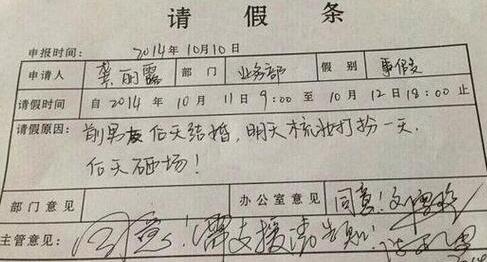 请假条
申报时间： 2014年10月10日
申请人 龚丽露 部门 业务部 假别 事假
请假时间 自2014年10月11日9:00至10月12日18:00止
请假原因： 前男友后天结婚，明天梳妆打扮一天，
后天砸场！
部门意见 办公室意见 同意！
主管意见： 同意！需支援请告别！